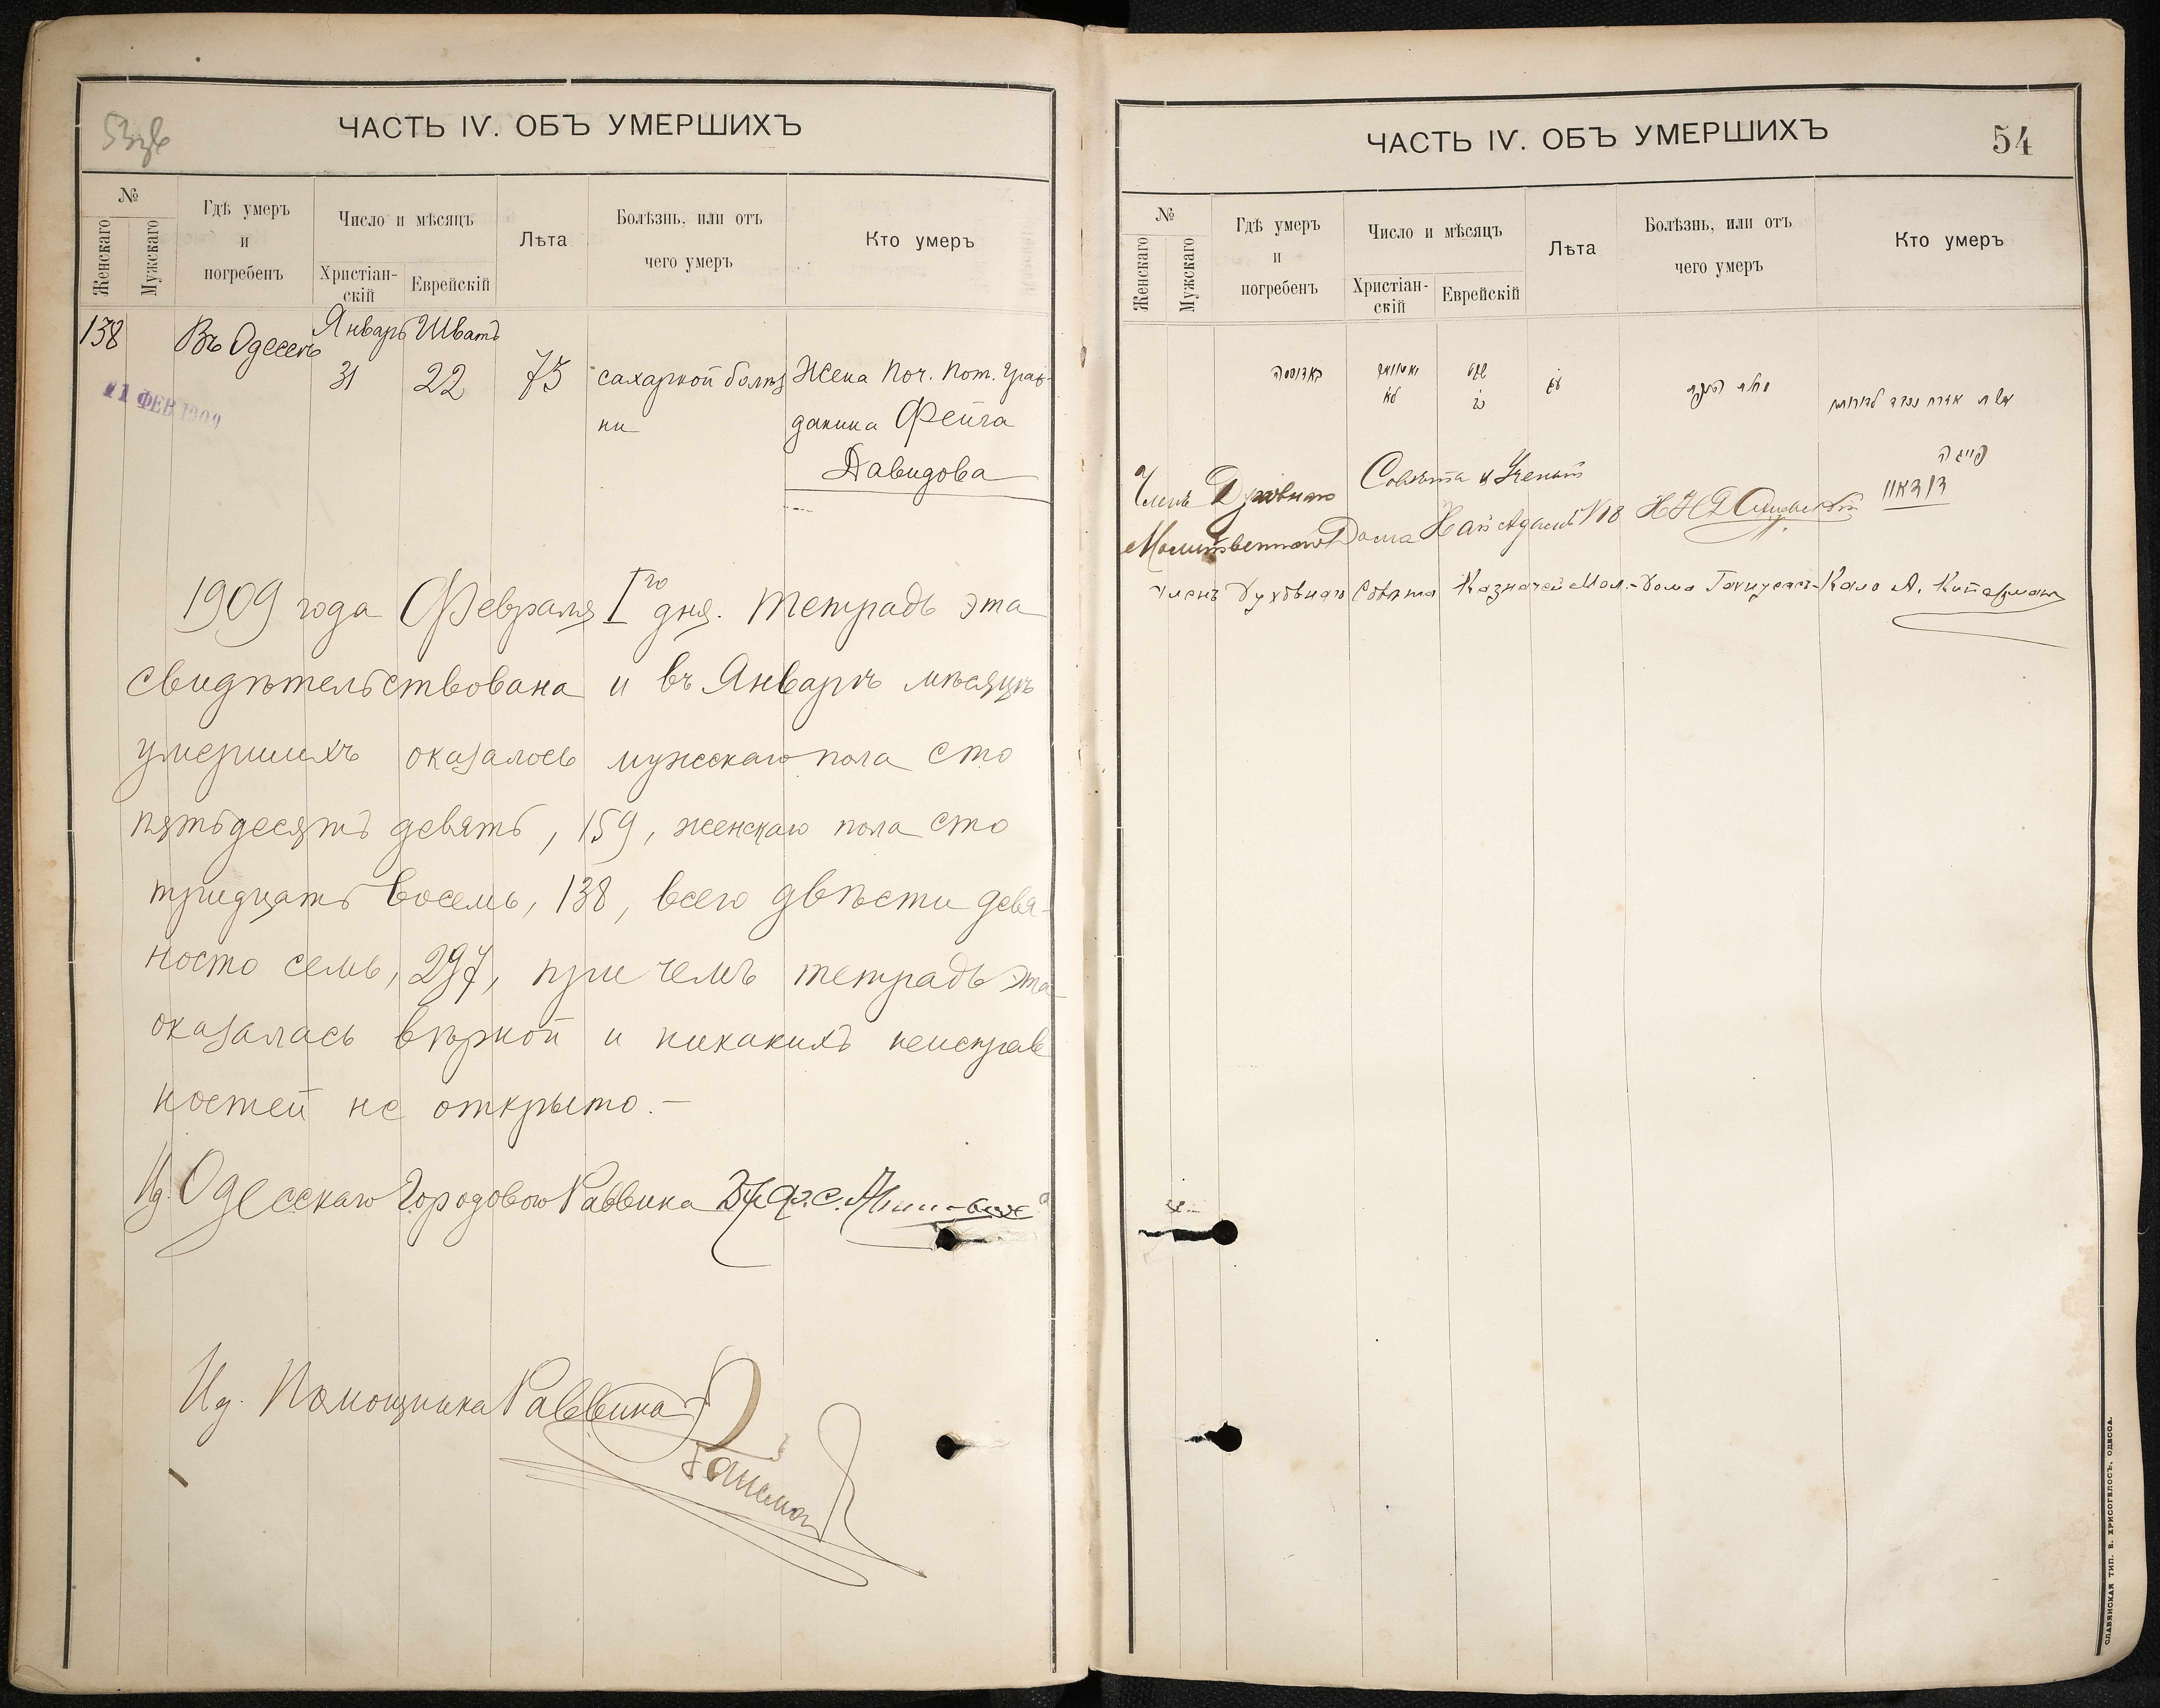 53 об
ЧАСТЬ IV. ОБЪ УМЕРШИХЪ
№
Женскаго
Мужскаго
Гдѣ умеръ
и
погребенъ
Число и мѣсяцъ
Христіан-
скій
Еврейскій
Лѣта
Болѣзнь, или отъ
чего умеръ
Кто умеръ
138
Въ Одессѣ
Январь Шватъ
31 22 75 сахарной болѣз Жена Поч. Пот. Граж-
ни данина Фейга
Давидова
11 ФЕВ 1909
1909 года Февраля Iго дня. Тетрадь эта
свидѣтельствована и въ Январѣ мѣсяцѣ
умершихъ оказалось мужскаго пола сто
пятьдесятъ девять, 159, женскаго пола сто
тридцать восемь, 138, всего двѣсти девя-
носто семь, 297, при чемъ тетрадь эта
оказалась вѣрной и никакихъ неисправ
ностей не открыто.-
Ид. Одесскаго Городового Раввина
Ид. Помощника Раввина
ЧАСТЬ IV. ОБЪ УМЕРШИХЪ
54
№
Женскаго
Мужскаго
Гдѣ умеръ
и
погребенъ
Число и мѣсяцъ
Христіан-
скій
Еврейскій
Лѣта
Болѣзнь, или отъ
чего умеръ
Кто умеръ
באדוססה יאנואר שבט
לא כב עה
פייגה
Членъ Духовнаго Совѣта и Ученый
Молитвеннаго Дома Хаи Адамъ №18
Членъ Духовнаго Совѣта Казначей Мол.-Дома
СЛАВЯНСКАЯ ТИП. Е. ХРИСОГЕЛОСЪ. ОДЕССА.